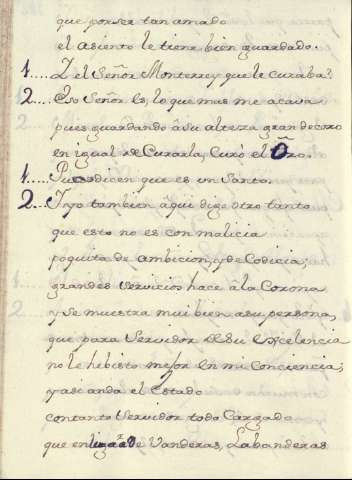 que por ser tan amado
el asiento le tiene bien guardado.
1.... Y el Señor Monterrey que le curaba?
2... Eso Señor es, lo que mas me acava
pues guardando à su alteza gran decoro
en igual de Curarla, Curò el Oro.
1.... Pues dicen que es un Santo.
2... Y yo tambien aqui digo otro tanto
que esto no es con malicia
poquita de ambicion, y de Codicia;
grandes servicios hace à la Corona
y se muestra mui bien a su persona,
que para Servidor de Su excelencia
no le he bisto mejor en mi Conciencia;
y asi anda el Estado
con tanto Servidor todo Cargado
que en lugar de Vanderas, Labanderas